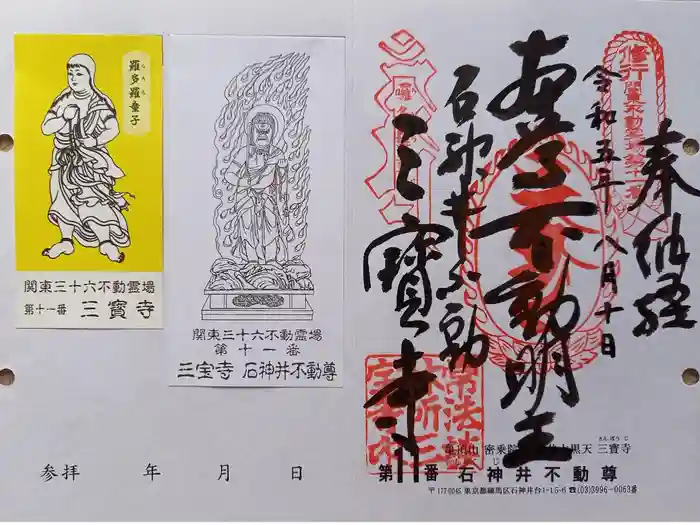 羅多羅童子
関東三十六不動霊場
第十一番 三寳寺
関東三十六不動霊場
第十一番
三宝寺 石神井不動尊
参拝 年 月 日
奉納経
令和五年八月十日
不動明王
石神井不動
三寳寺
三寳寺
さんぽうじ
第 番 石神井不動尊
〒177-0045 東京都練馬区石神井台1-15-6 ☎(03)3996-0063